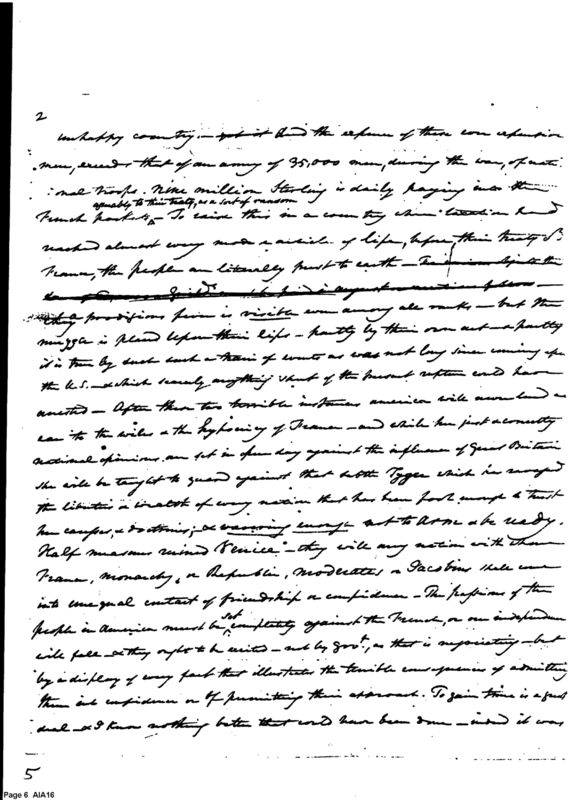 2
unhappy country — And the expence of these non expensive
men, exceeds that of an army of 35,000 men, during the war, of nati
ional troops. Nine million Sterling is daily paying into the
agreeably to their treaty, as a sort of ransom
French pockets — To raise this in a country where taxation had
reached almost every mode & article of life, before their treaty
France, the people are literally prest to earth —
prodigious is visible even among all ranks — but the
muzzle is placed upon their lips — partly by their own act & partly
it is true by such a train of events as was not long since coming upon
the U.S. & which scarcely anything short of the present rupture could have
arrested — After these two terrible instances america will never lend an
ear to the wiles & the hypocrisy of France — and while her just & correctly
national opinions are set in open day against the influence of Great Britain
she will be taught to guard against that subtle Tyger which has ravaged
the liberties & wealth of every nation that has been fool enough to trust
her caresses, & doctrines; & enough not to Arm & be ready.
Half measures ruined Venice — they will any nation with whom
France, monarchy, or Republic, Moderates or Jacobins shall come
into unequal contact of friendship or confidence — The passions of the
set
people in America must be completely against the French, or our independence
will fall — & they ought to be excited — not by govt, as that is negociating — but
by a display of every fact that illustrates the terrible consequences of admitting
them into confidence or of permitting their approach. To gain time is a great
deal — & I know nothing better that could have been done — indeed it was
5
Page 6 AIA16